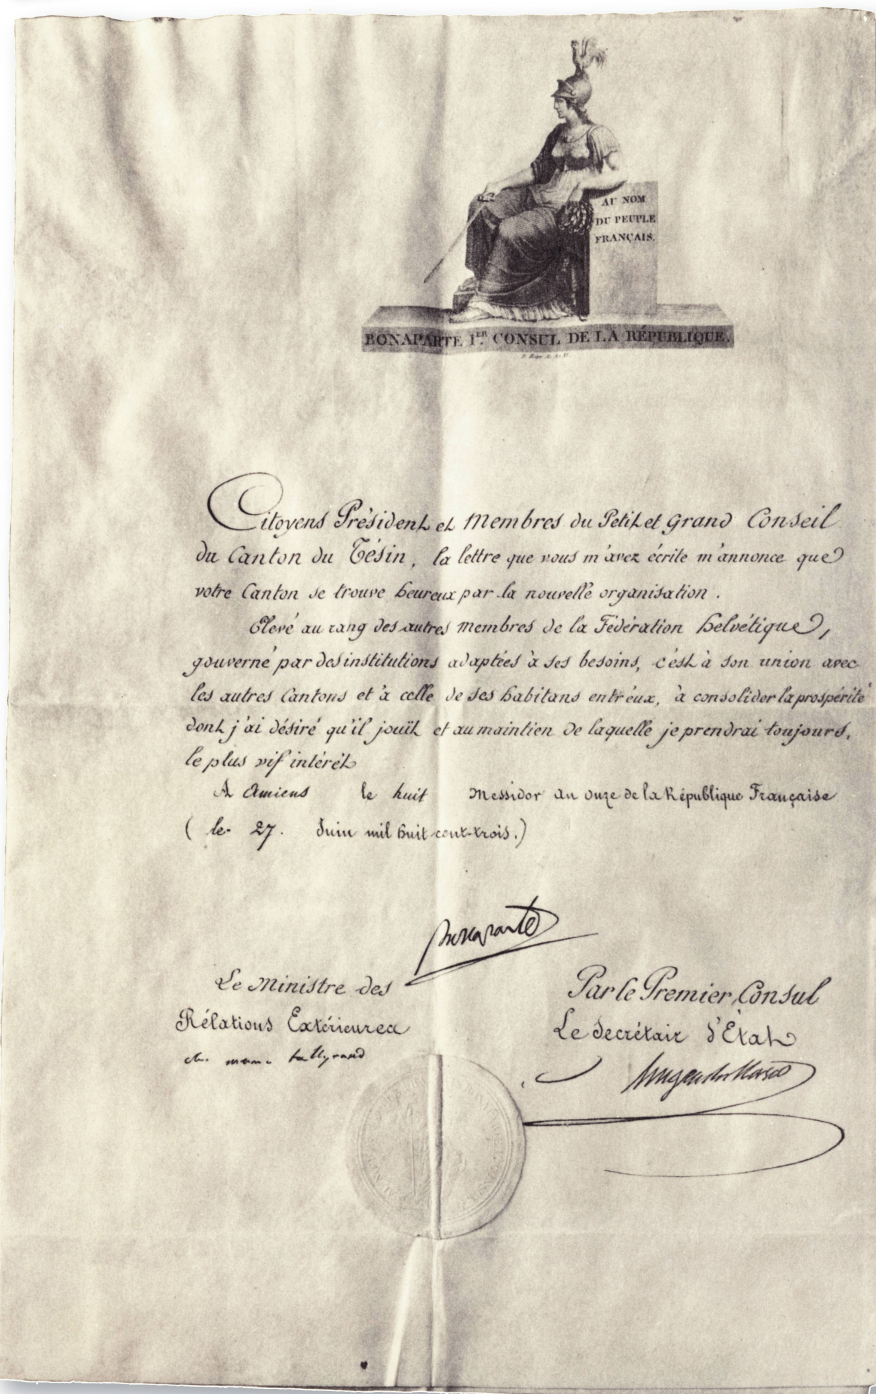 AU NOM
DU PEUPLE
FRANÇAIS.
BONAPARTE 1ER. CONSUL DE LA RÉPUBLIQUE.
Citoyens Président et Membres du Petit et Grand Conseil
du Canton du Tésin, la lettre que vous m'avez écrite m'annonce que
votre Canton se trouve heureux par la nouvelle organisation.
Elevé au rang des autres membres de la Fédération helvétique,
gouverné par des institutions adaptées à ses besoins, c'est à son union avec
les autres Cantons et à celle de ses habitans entr'eux, à consolider la prospérité
dont j'ai désiré qu'il jouit et au maintien de laquelle je prendrai toujours,
le plus vif intérêt
A Amiens le huit Messidor an onze de la République Française
( le 27. Juin mil huit cent-trois.)
Bonaparte
Le Ministre des
Rélations Extérieures
ch. mau. talleyrand
Par le Premier Consul
Le Secrétair d'État